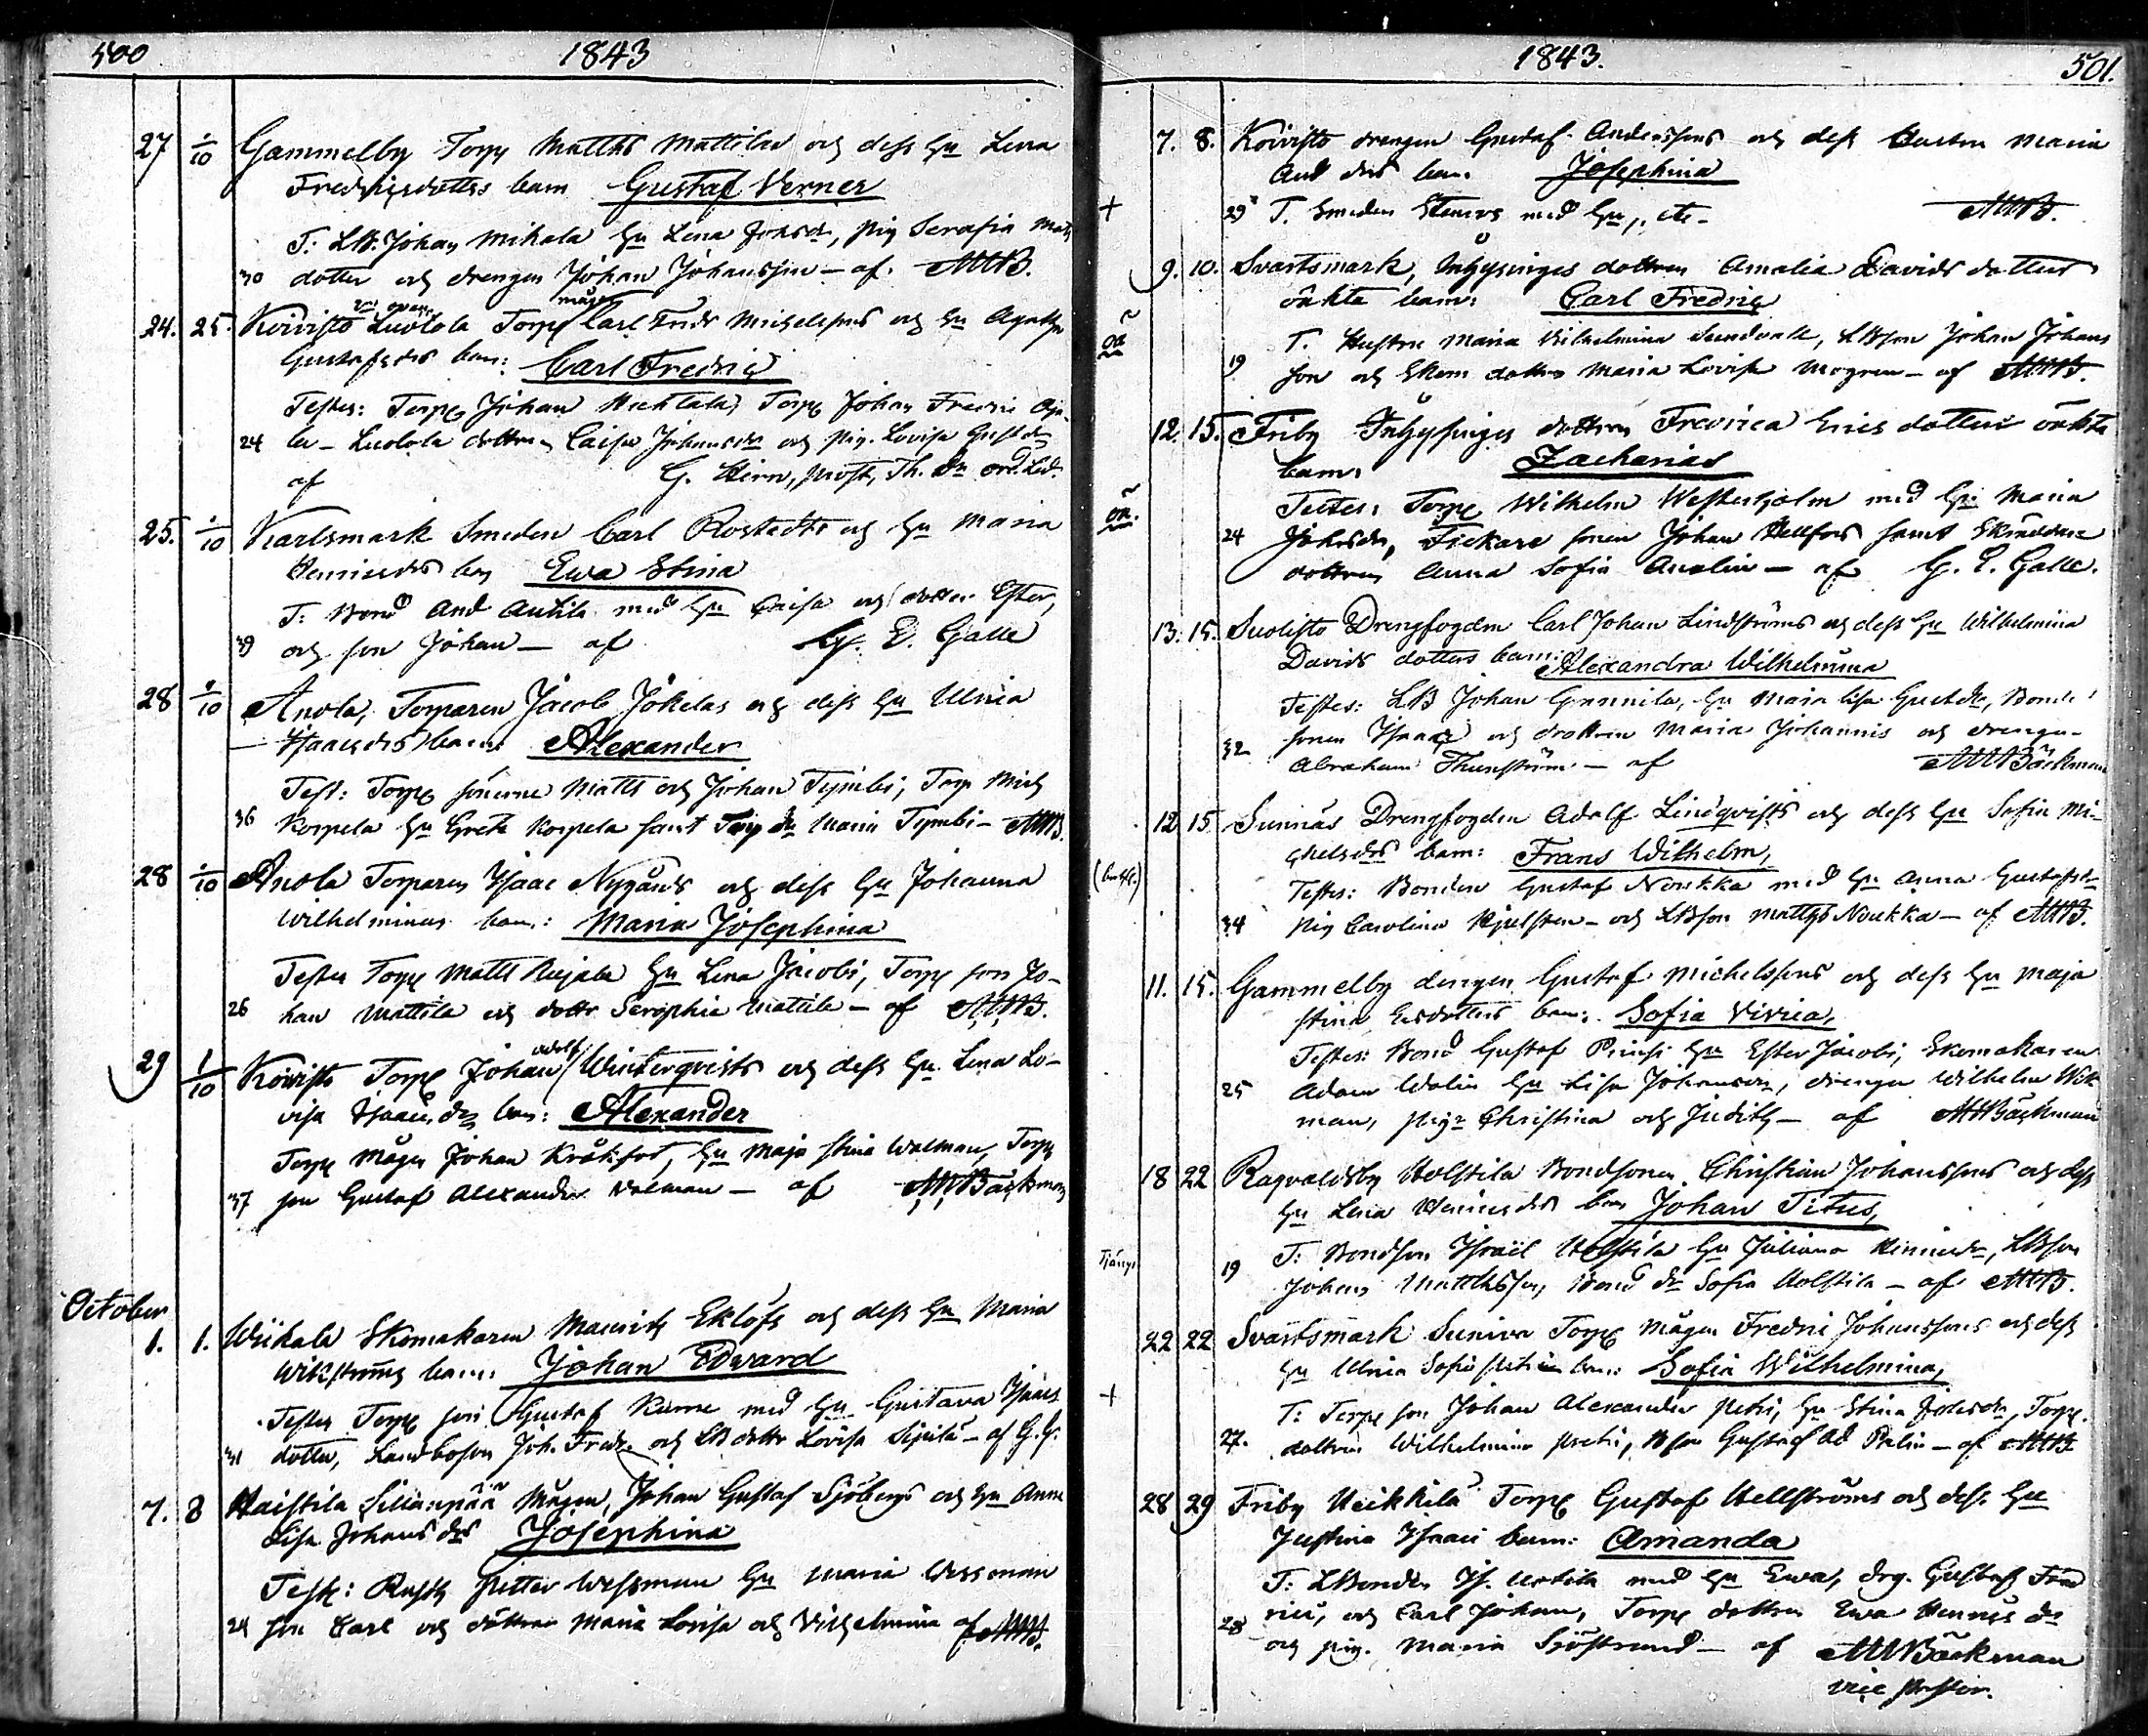 500 1843
27 1/10 Gammelby Torp Matths Mattilas och dess Hu Lena
Fredriqsdotters barn Gustaf Verner
T: LB. Johan Mikola Hu Lena Johsdr, pig Serafia Matts
30 dotter och drengen Johan Johansson - af MWB.
24. 25. Koivisto Luolola Torp måg Carl Fredr Michelssons och Hu Agatha
Gustafsdrs barn: Carl Fredric
Testes: Torp Johan Torp Johan Fredric
24 Luolola dottren Caisa Johansdr och pig. Lovisa Gustdr
af G. Hirn, prost, Th. Dr ord. Led.
25. 1/10 Karlsmark Smeden Carl Rostedts och Hu Maria
Henricsdrs barn Ewa Stina
T: Bond And Anttila med Hu Caisa och dotter Ester,
39 och son Johan - af G. E. Galle
28 1/10 Anola, Torparen Jacob Jokelas och dess Hu Ulrica
Isaacsdrs barn: Alexander
Test: Torp sönerne Matts och Johan Tymbi, Torp Mich
36 Korpela Hu Greta Korpela samt Torp dr Maria Tymbi - MWB.
28 1/10 Anola Torparen Isaac Nygårds och dess Hu Johanna
Wilhelminas barn: Maria Josephina
Testes Torp Matts Hu Lena Jacobi, Torp son Jo-
26 han Mattila och dottr Seraphia Mattila - af MWB.
29 1/10 Koivisto Torp Johan Adolf Winterqvists och dess Hu Lena Lo-
visa Isaacsdrs barn: Alexander
Torp Mågen Johan Kråkfot, Hu Maja Stina Walman, Torp
37 son Gustaf Alexander Walman - af MWBäckman
October
1. 1. Wiikala Skomakaren Maurits Eklöfs och dess Hu Maria
Wikströms barn: Johan Edward
Testes Torp son Gustaf med Hu Gustava Isaacs
31 dotter, Landboson Joh. Fredr. och LB dottr Lovisa - af G.G.
7. 8 Haistila Sillanpää Mågen, Johan Gustaf Sjöbergs och Hu Anna
Lisa Johansdrs Josephina
Test: Rusth Petter Wessman Hu Maria Wessman
24 son Carl och döttrar Maria Lovisa och Wilhelmina af MWB.
1843. 501.
7. 8. Koivisto drengen Gustaf Anderssons och dess Hustru Maria
And drs barn. Josephina
+ 29 T. Smeden Stenros med Hu, etc - MWB.
9. 10. Svartsmark, Inhysinges dottren Amalia Davids dotters
oä oäkta barn: Carl Fredric
T. Hustru Maria Wilhelmina Sundvall, LBson Johan Johans
19 son och Skom dottren Maria Lovisa Mogren - af MWB.
12. 15. Friby Inhysinges dottren Fredrica Erics dotters oäkta
barn: Zacharias
oä. Testes: Torp Wilhelm Westerholm med Hu Maria
24 Johsdr, Fiskare sonen Johan Hellfors samt Skräddare
dottren Anna Sofia - af G. E. Galle.
13. 15. Suolisto Drengfogden Carl Johan Lindströms och dess Hu Wilhelmina
Davids dotters barn: Alexandra Wilhelmina
Testes: LB Johan Gunnila, Hu Maia Lisa Gustdr, Bonde
32 sonen Isaac och dottren Maria Johannis och drengen
Abraham Thunström - af MWBäckman
12 15 Sunnäs Drengfogden Adolf Lindqvists och dess Hu Sofia Mi-
chelsdrs barn: Frans Wilhelm,
Testes: Bonden Gustaf Noukka med Hu Anna Gustafsdr
34 pig Carolina - och LBson Matths Noukka - af MWB.
11. 15. Gammelby drengen Gustaf Michelssons och dess Hu Maja
Stina Ersdotters barn: Sofia Vivica,
Testes: Bond Gustaf Hu Ester Jacobi, Skomakaren
25 Adam Walin Hu Lisa Johansdr, drengen Wilhelm Wik
man, pigr Christina och Judith - af MWBäckman
18 22 Ragvaldsby Holstila Bondsonen Christian Johanssons och dess
Hu Lena Henricsdrs barn Johan Titus,
19 T: Bondson Israël Holstila Hu Juliana Henricsdr, LBson
Johan Matthsson, Bond dr Sofia Holstila - af MWB.
22 22 Svartsmark Torp Mågen Fredric Johanssons och dess
Hu Ulrica Sofia Petri barn: Sofia Wilhelmina,
+ T: Torp son Johan Alexander Petri, Hu Stina Johsdr, Torp.
27. dottren Wilhelmina Petri, B son Gustaf Ad Palin - af MWB
28 29 Friby Heikkilä Torp Gustaf Hellströms och dess Hu
Justina Isaaci barn: Amanda
T: LBonden Is. med Hu Ewa, drg. Gustaf Fred
28 rici, och Carl Johan, Torp dottren Ewa Henrics dr
och pig. Maria Sjöstrand - af MWBäckman
vice pastor.